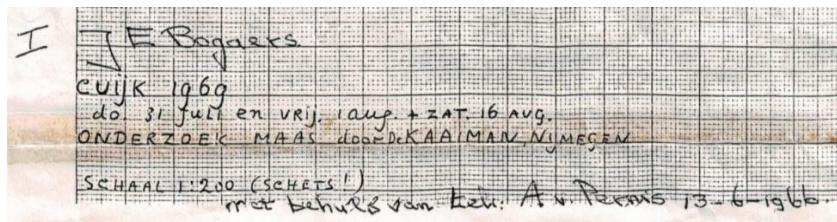 I JE Bogaers
CUIJK 1969
do. 31 Juli en VRIJ. 1 aug. + ZAT. 16 AUG.
ONDERZOEK MAAS door De KAAIMAN, NIJMEGEN
SCHAAL 1:200 (SCHETS!)
met behulp van tek: A v. Pernis 13-6-1966.